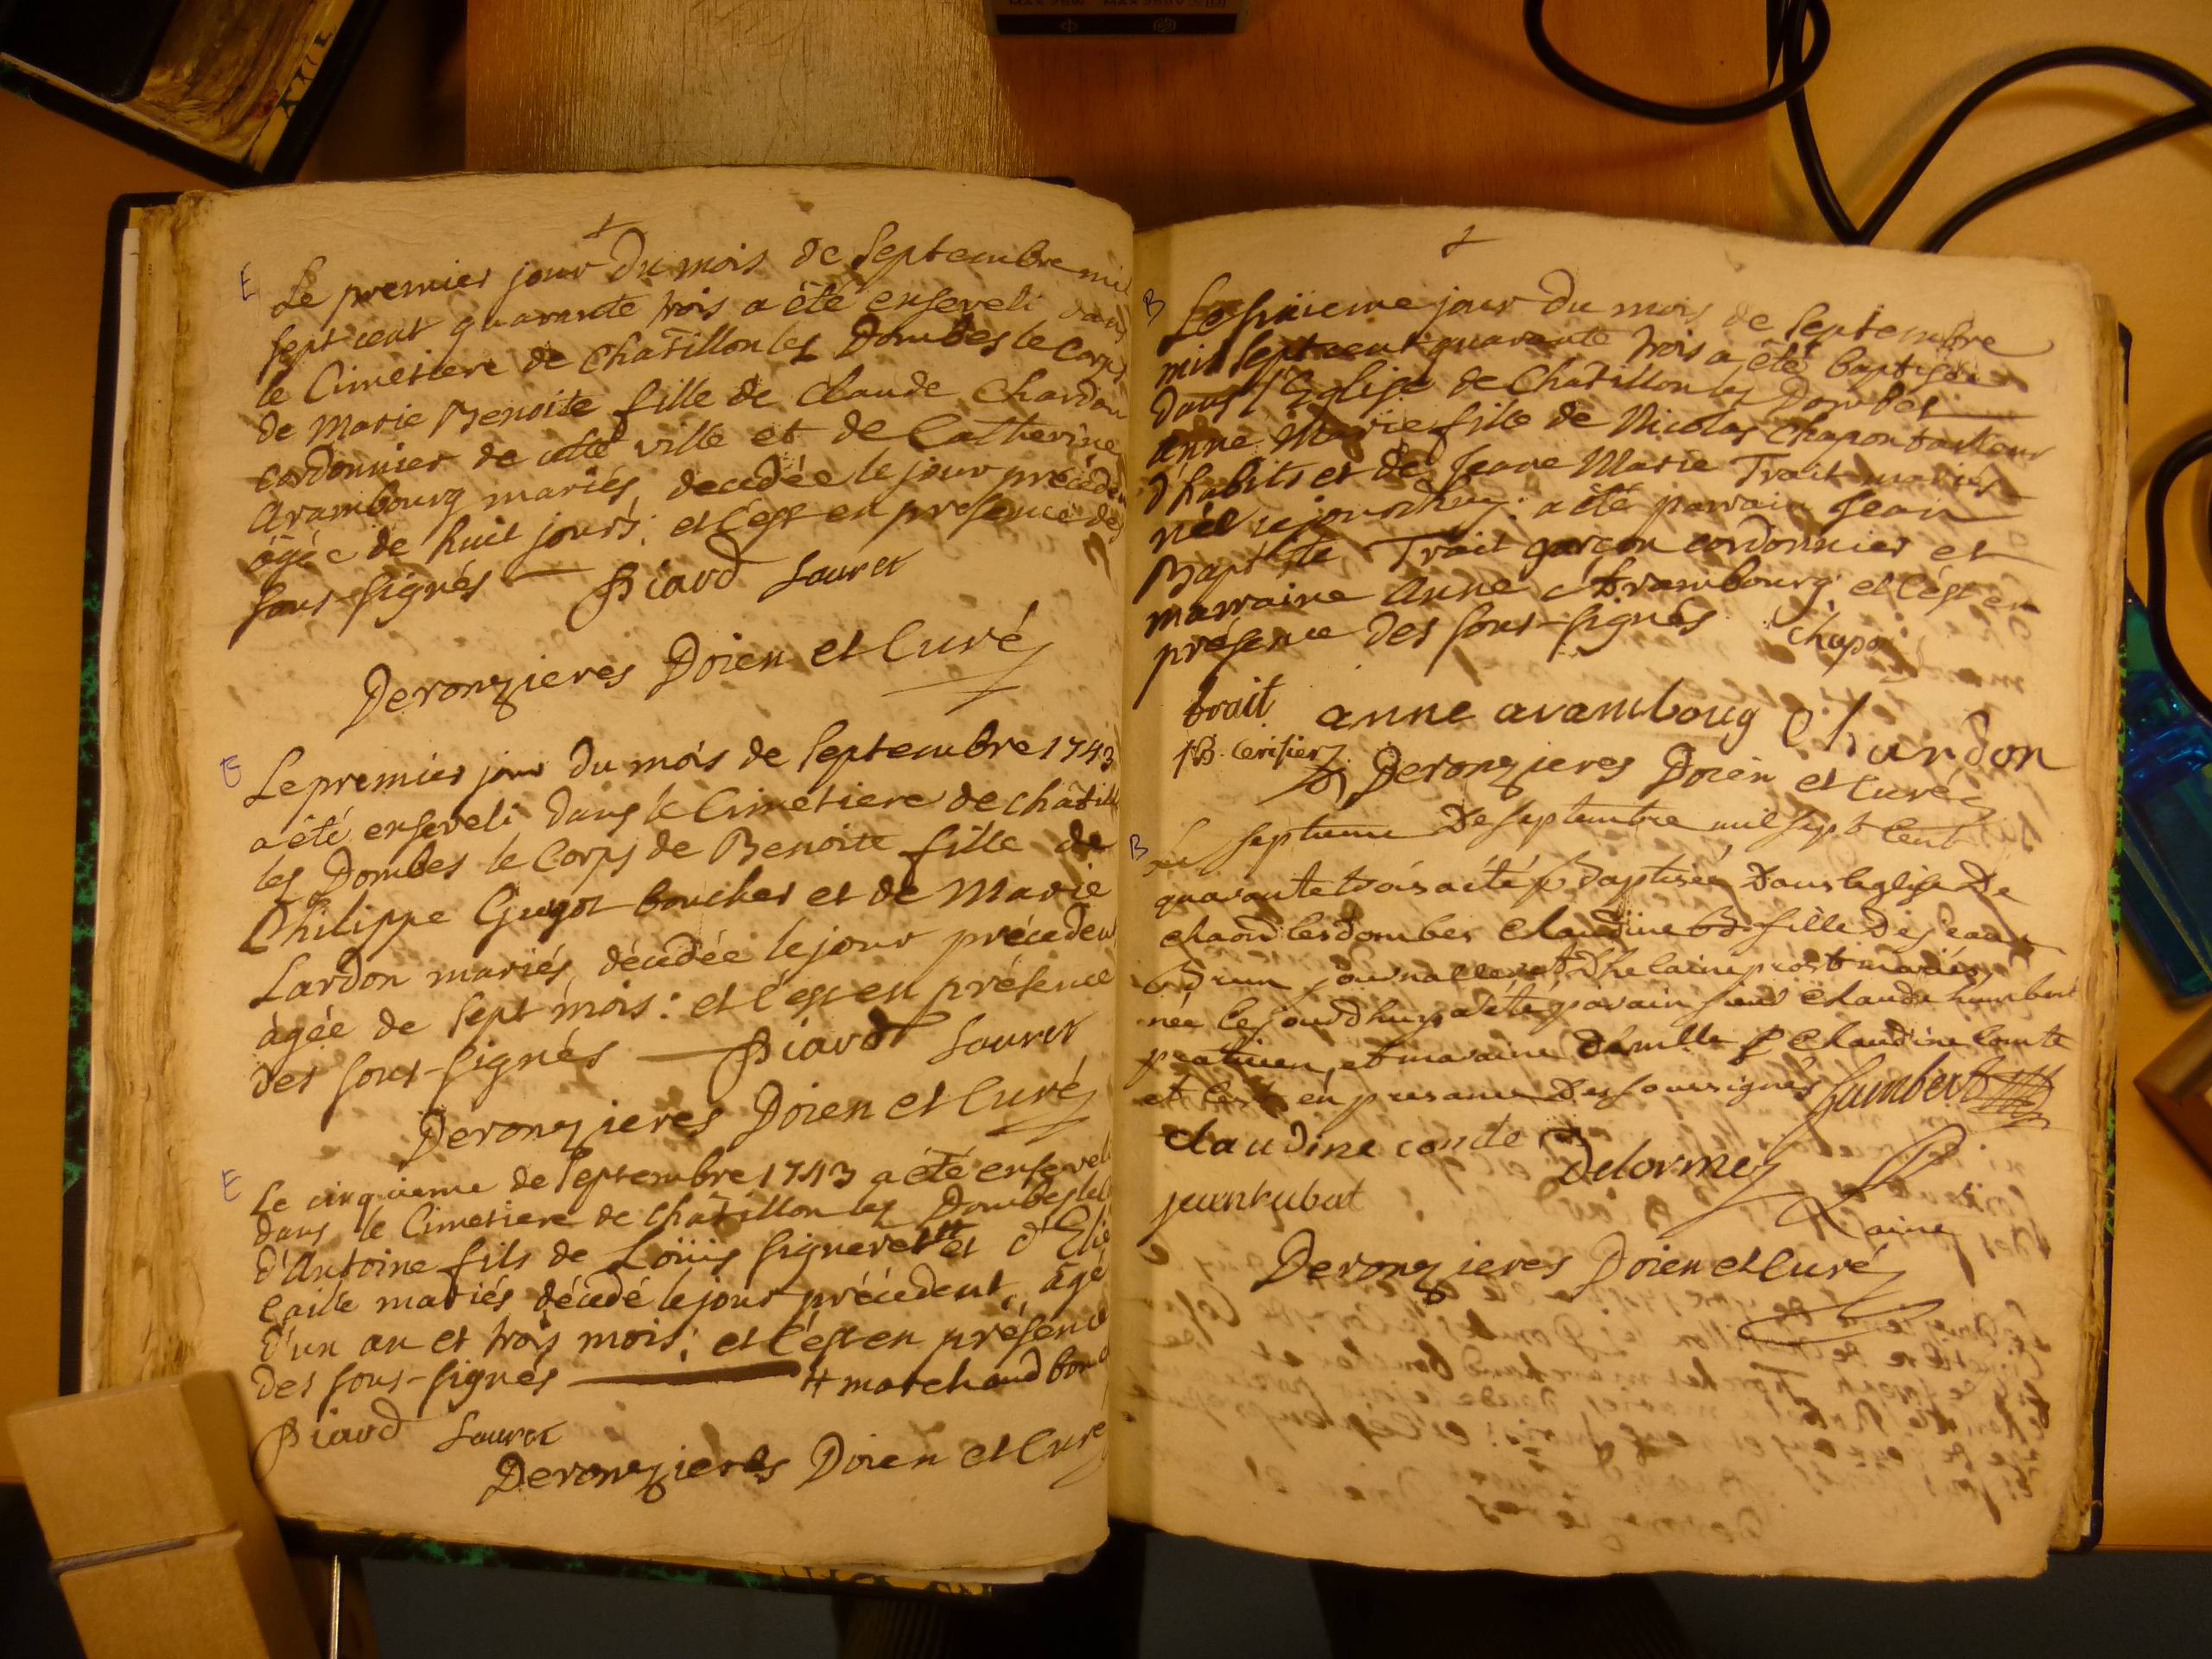 E Le premier jour du mois de Septembre mil
sept cent quarante trois a été enseveli dans
le Cimetiere de Chatillon les Dombes le Corps
de Marie Benoite fille de Claude Chardon
cordonnier de cette ville et de Catherine
Arambourg mariés, decedée le jour précédent
âgée de huit jours; et c'est en presence des
sous-signés Biard Sauret
Deronzieres Doien et Curé
E Le premier jour du mois de Septembre 1743
a été enseveli dans le Cimetiere de Châtill
les Dombes le Corps de Benoite fille de
Philippe Guyot boucher et de Marie
Lardon mariés, décédée le jour précédent
âgée de sept mois: et c'est en présence
des sous-signés Biard Sauret
Deronzieres Doien et Curé
E Le cinquieme de Septembre 1743 a été enseveli
dans le Cimetiere de Châtillon les Dombes le C
d'Antoine fils de Loüis Signeret # et d'Elie
Caille mariés décédé le jour précédent, âgé
d'un an et trois mois; et c'est en présence
des sous-signés # marchand bou
Biard Sauret
Deronzieres Doien et Curé
B Le sixieme jour du mois de Septembre
mil sept cent quarante trois a été baptisée
dans l'Eglise de Chatillon les Dombes
Anne Marie fille de Nicolas Chapon tailleur
d'habits et de Jeane Marie Trait mariés
née ce jourdhuy: a été parrain Jean
Baptiste Trait garçon cordonnier et
marraine Anne Arambourg et c'est en
présence des sous-signés Chapon
trait anne aramboug Chardon
JB. Cerisier Deronzieres Doien et Curé
B Le septieme de septembre mil sept cent
quarante trois a été baptisée dans leglise de
chaon les dombes Claudine fille de jean
Brun journallier et dhelaine prost mariés
née ce jourdhuy a été parain sieur Claude humbert
praticien, et maraine damlle Claudine Comte
et cest en presance des soussignés humbert
claudine conde Delorme
jean rubat Laine
Deronzieres Doien et Curé